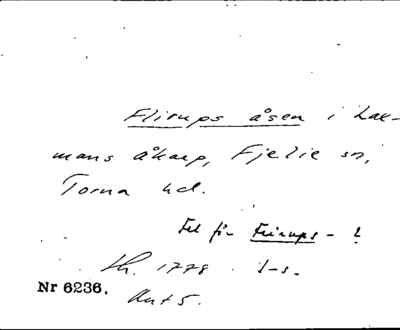 Flirups åsen i Lac-
mans åkarp, Fjelie sn,
Torna hd.
Fel för Feirups- ?
Lh. 1778
Nr 6236. Akt 5.